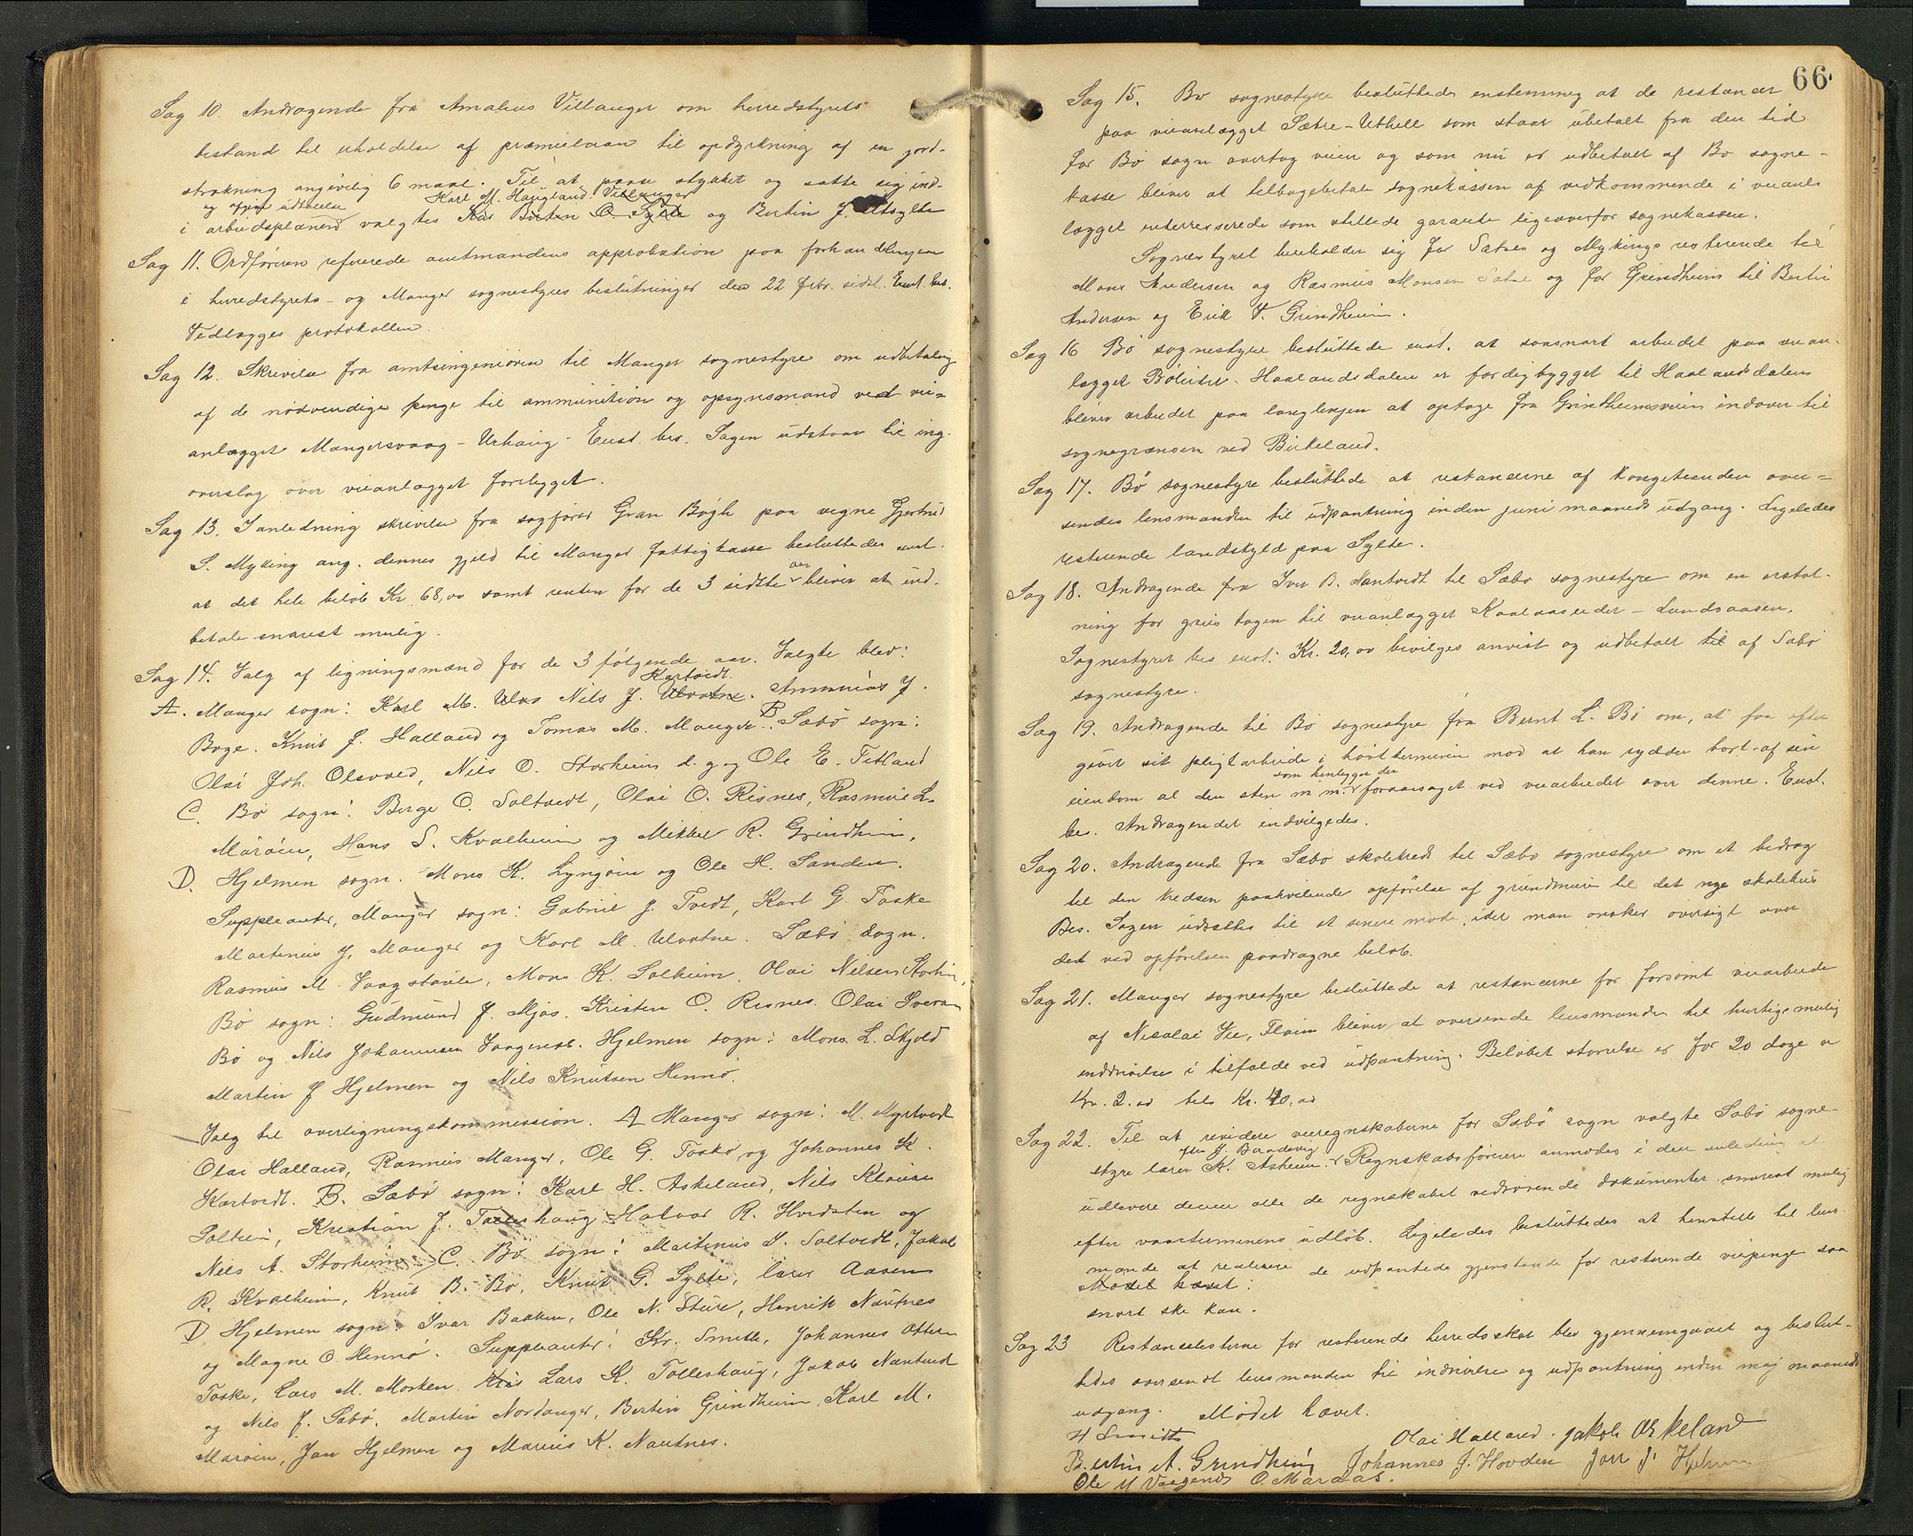 Sag 10. Andragende fra Amalius Villanger om herredstyrets
bistand til erholdelse af præmielaan til opdyrkning af en jord-
strækning angivelig 6 maal. Til at paase stykket og sætte sig ind-
og afgive udtalelse Karl M. Haugland Villanger
i arbeidsplanen valgtes Berten O. Sylte og Bertin J. Utsylte
Sag 11. Ordføreren refererede amtmandens approbation paa forhandlingen
i herredstyrets- og Manger sognestyres beslutninger den 22 febr. sidst. Enst. bes.
Vedlægges protokollen.
Sag 12. Skrivelse fra amtsingeniøren til Manger sognestyre om udbetaling
af de nødvendige penge til ammunition og opsynsmand ved vei-
anlægget Mangersvaag - Urhaug. Enst. bes. Sagen udstaar til ing.
overslag over veianlægget foreligger.
Sag 13. I anledning skrivelse fra sagfører Gran Bøgh paa vegne Gjertrud
S. Myking ang. dennes gjeld til Manger fattigkasse besluttedes enst.
at det hele beløb Kr. 68,00 samt renten for de 3 sidste aar bliver at ind-
betale snarest mulig.
Sag 14. Valg af ligningsmænd for de 3 følgende aar. Valgte blev:
Kartveit.
A. Manger sogn: Karl M. Nils J. Ulvatne. Ammnias J.
Boge. Knut J. Halland og Tomas M. Manger. B Sæbø sogn:
Olai Joh. Olsvold, Nils O. Storheim d. y. og Ole E. Tetland
C. Bø sogn: Børge O. Soltvedt, Olai O. Risnes, Rasmus L.
Marøen, Hans S. Kvalheim og Mikkel R. Grindheim,
D. Hjelmen sogn. Mons K. Lyngøen og Ole H. Sanden.
Suppleanter, Manger sogn: Gabriel J. Tvedt, Karl G. Toske
Martinus J. Manger og Karl M. Ulvatne. Sæbø sogn.
Rasmus M. Vaagstøule, Mons K. Solheim, Olai Nelsen Storheim,
Bø sogn: Gudmund J. Mjøs. Kristen O. Risnes. Olai Iversen
Bø og Nils Johannessen Vaagenes. Hjelmen sogn: Mons L. Skjold
Martin J Hjelmen og Nils Knutsen Hennø.
Valg til overligningskommission. A Manger sogn: M. Myrtvedt
Olai Halland, Rasmus Manger, Ole G. Toske og Johannes K.
Kartveit. B. Sæbø sogn: Karl H. Askeland, Nils Klausen
Solheim, Kristian J. Tolleshaug Halvor R. Hvidsten og
Nils A. Storheim. C. Bø sogn: Martinus S. Soltvedt, Jakob
R. Kvalheim, Knut B. Bø, Knut G. Sylte, lærer Aasen
D Hjelmen sogn: Ivar Bakken, Ole N. Sture, Henrik Nautnes
og Magne O. Hennø. Suppleanter: Kr. Smith, Johannes Ottersen
Toske, Lars M. Morken Lars K. Tolleshaug, Jakob Nantvedt
og Nils J. Sæbø. Martin Nordanger, Bertin Grindheim, Karl M.
Marøen, Jan Hjelmen og Marius K. Nautnes.
66.
Sag 15. Bø sognestyre besluttedes enstemmig at de restancer
paa veianlægget Sætre-Uthelle som staar ubetalt fra den tid
før Bø sogn overtog veien og som nu er udbetalt af Bø sogne-
kasse bliver at tilbagebetale sognekassen af vedkommende i veian-
lægget interresserede som stillede garanti ligeoverfor sognekassen.
Sognestyret henholder sig for Sætres og Mykings resterende til
Mons Andersen og Rasmus Monsen Sætre og for Grindheim til Bertin
Andersen og Erik T. Grindheim.
Sag 16 Bø sognestyre besluttede enst. at saasnart arbeidet paa veian-
lægget Bøleiter-Haalandsdalen er færdigbygget til Haalandsdalen
bliver arbeidet paa langlinjen at optage fra Grindheimsveien indover til
sognegrænsen ved Birkeland.
Sag 17. Bø sognestyre besluttede at restancerne af kongetienden over-
sendes lensmanden til udpantning inden juni maaneds udgang. Ligeledes
resterende landskyld paa Sylte.
Sag 18. Andragende fra Iver B. Nantvedt til Sæbø sognestyre om en erstat-
ning for grus tagen til veianlægget Kaalaaseidet - Lundsaasen.
Sognestyret bes enst: Kr. 20,00 bevilges anvist og udbetalt til af Sæbø
sognestyre.
Sag 19. Andragende til Bø sognestyre fra Bernt L. Bø om, at faa efter-
givet sit pligtarbeide i høstterminen mod at han rydder bort af sin
som henligger der
eiendom al den sten m. m. foraarsaget ved veiarbeidet over denne. Enst.
bes. Andragendet indvilgedes.
Sag 20. Andragende fra Sæbø skolekreds til Sæbø sognestyre om et bidrag
til den kredsen paahvilende opførelse af grundmuren til det nye skolehus
Bes. Sagen udsættes til et senere møde, idet man ønsker oversigt over
det ved opførelsen paadragne beløb.
Sag 21. Manger sognestyre besluttede at restancerne for forsømt veiarbeide
af Nicolai Vee, Fløim bliver at oversende lensmanden til hurtigs mulig
inddrivelse i tilfælde ved udpantning. Beløbet størrelse er for 20 dage a
kr. 2.00 tils Kr. 40,00
Sag 22. Til at revidere veiregnskaberne for Sæbø sogn valgte Sæbø sogne-
styre lærer K. Askeim. Regnskabsføreren anmodes i den anledning at
udlevere denne alle de regnskabet vedrørende dokumenter snarest mulig
efter vaarterminens udløb. Ligeledes besluttedes at henstille til lens-
mande at realisere de udpantede gjenstande for resterende veipenge saa
Mødet hævet:
snart ske kan.
Sag 23 Restancelisterne for resterende herredsskat blev gjennemgaaet og beslut-
tedes oversendt lensmanden til inddrivelse og udpantning inden maj maaneds
udgang. Mødet hævet.
H Smith Olai Halland. Jakob Askeland
Bertin A. Grindheim Johannes J. Hovden Jan J. Hjelmen
Ole M Vaagenes O. Maraas.